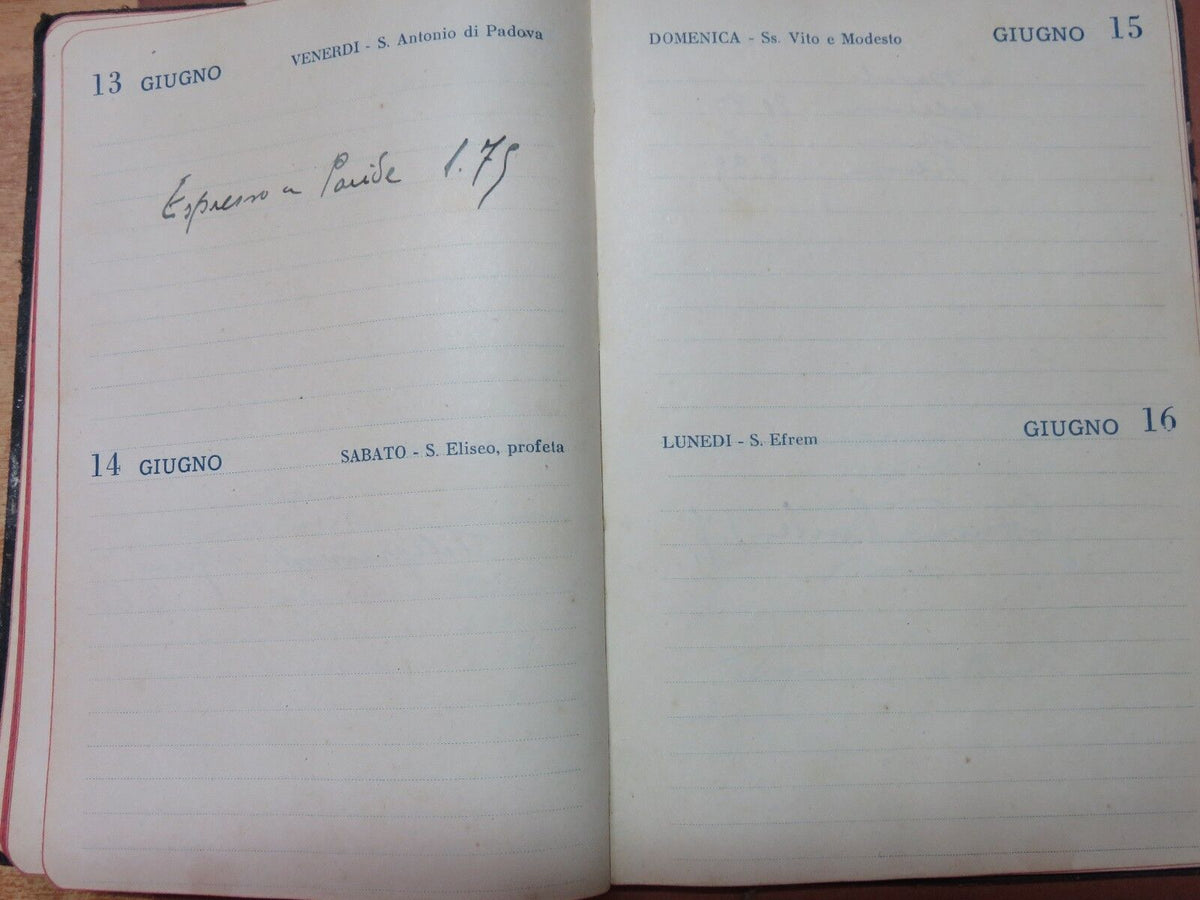 13 GIUGNO VENERDI - S. Antonio di Padova
Espresso a Paride 1.75
14 GIUGNO SABATO - S. Eliseo, profeta
DOMENICA - Ss. Vito e Modesto GIUGNO 15
LUNEDI - S. Efrem GIUGNO 16